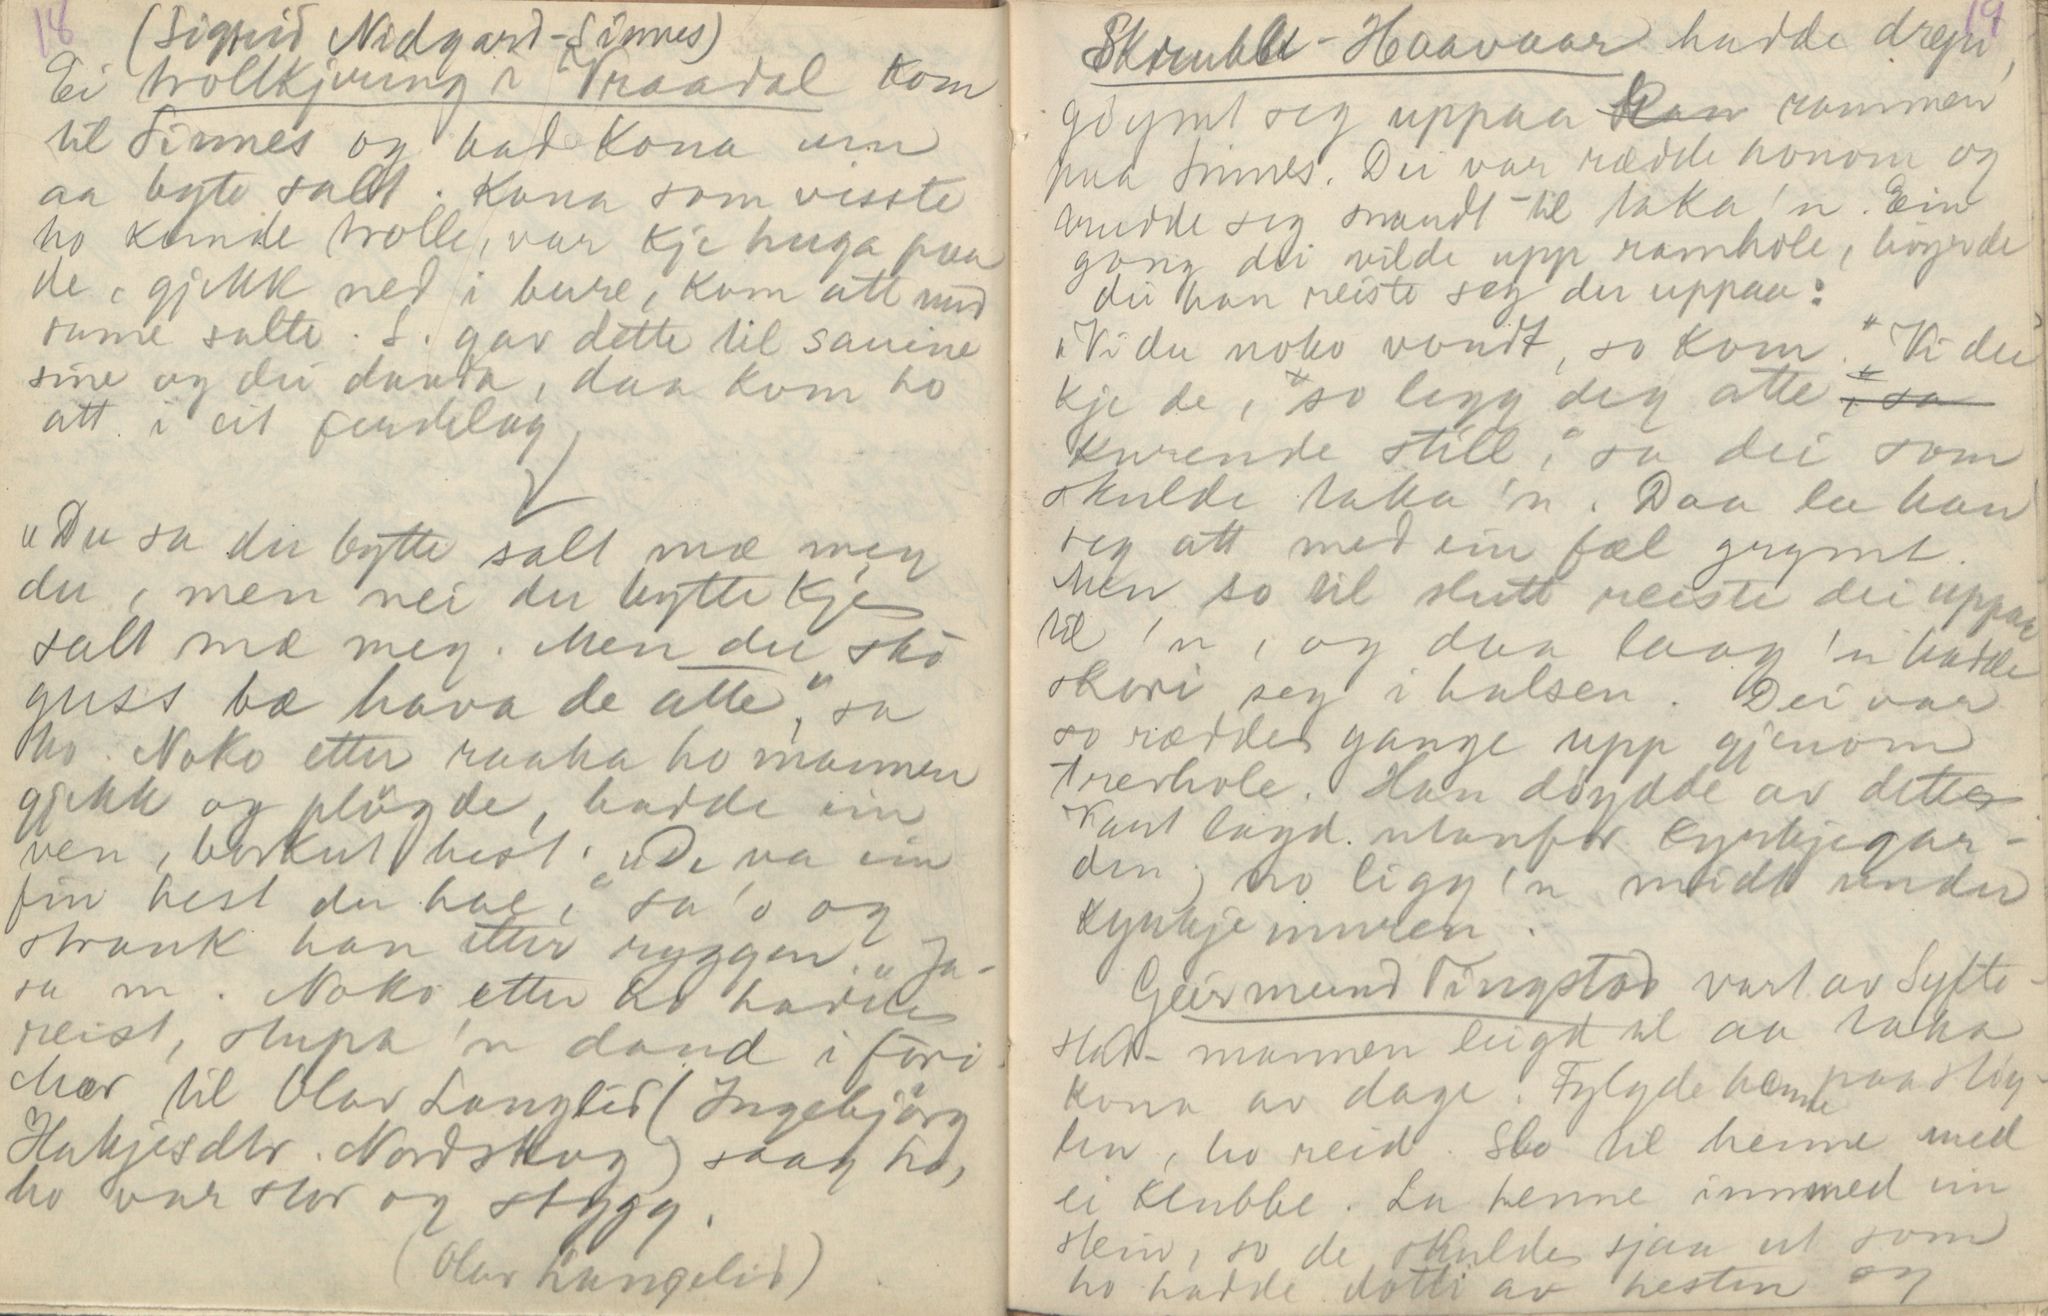 18
(Sigrid Nidgard-Sinnes)
Ei trollkjering i Vraadal kom
til Sinnes og bad kona um
aa byte salt. Kona som visste
ho kunde trolle, var kje huga paa
de, gjekk ned i bure, kom att med
same salte. S. gav dette til sauine
sine og dei dauda, daa kom ho
att i eit ferdelag
"Du sa du bytte salt mæ meg
du, men nei du bytte kje
salt mæ meg. Men du sko
guss bæ hava de atte," sa
ho. Noko etter raaka ho mannen
gjekk og pløgde, hadde ein
ven, borkut hest. "De va ein
fin hest du hae," sa 'o og
strauk han etter ryggen. "Ja-
sa 'n. Noko etter ho hadde
reist, stupa 'n daud i fori.
Mor til Olav Langlid (Ingebjörg
Hakjesdtr. Nordskog) saag ho,
ho var stor og stygg.
(Olav Langelid)
19
Skrubbe-Haavaar hadde drepi,
gøymt seg uppaa rammen
paa Sinnes. Dei var rædde honom og
seg til taka 'n. Ein
gong dei vilde upp ramhole, høyrde
dei han reiste seg der uppaa:
"Vi du noko vondt, so kom." "Vi du
kje de, "so legg deg atte, sa
kurende still," sa dei som
skulde taka 'n. Daa la han
seg att med ein fæl grymt.
Men so til slutt reiste dei uppaa
til 'n, og daa laag 'n hadde
skori seg i halsen. Dei var
so rædde gange upp gjenom
trevhole. Han døydde av dette
Vart lagd utanfor kyrkjegar-
den, no ligg 'n midt under
kyrkjemuren.
Geirmund Tingstad vart av Syfte-
stad-mannen leigd til aa taka
kona av dage. Fylgde henne paa støy-
len, ho reid. Slo til henne med
ei klubbe. La henne innmed ein
stein, so de skulde sjaa ut som
ho hadde dotti av hesten og